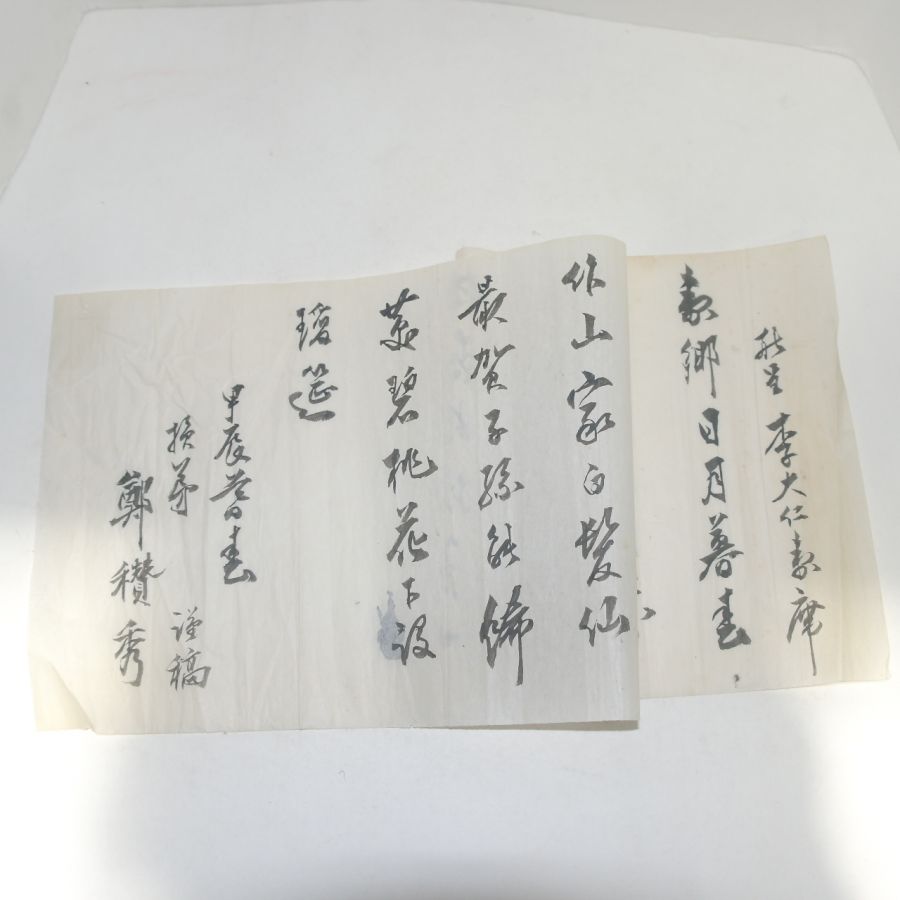 李大仁壽席
壽鄉日月暮春
作山家白髮仙
最賀子孫能
英碧桃花下設
瓊筵
甲辰暮春
損弟 謹稿
鄭欑秀